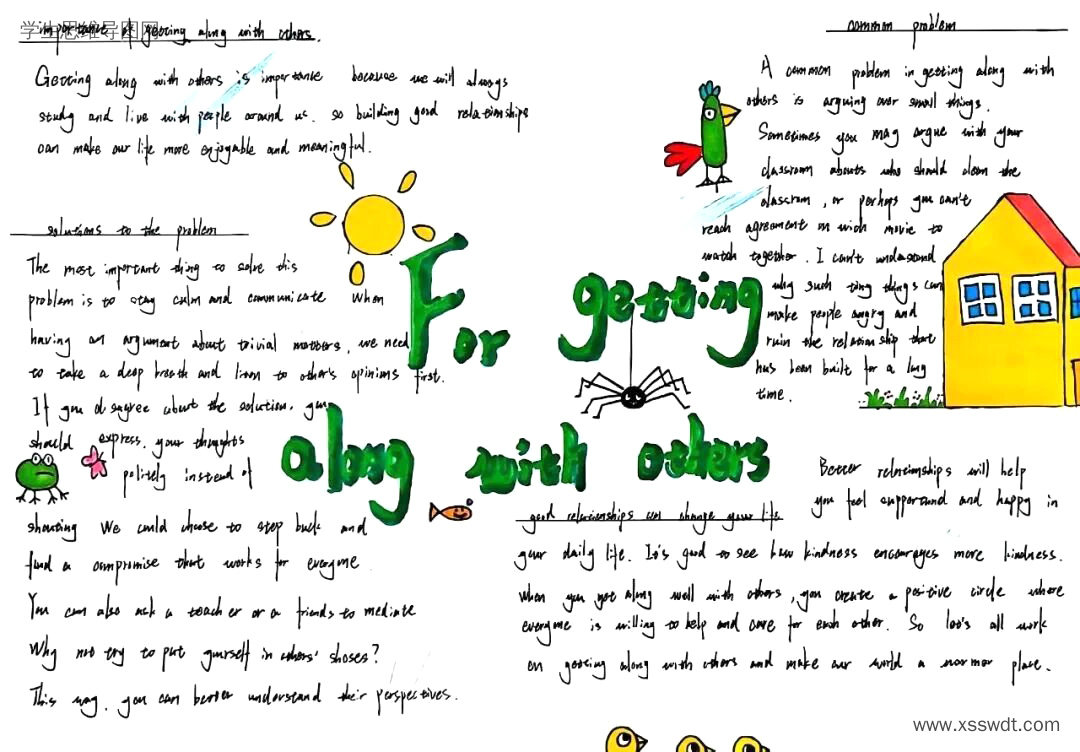 学生思维导图网
importance of getting along with others.
Getting along with others is importance because we will always
study and live with people around us. so building good relationships
can make our life more enjoyable and meaningful.
common problem
A common problem in getting along with
others is arguing over small things.
Sometimes you may argue with your
classroom abouts who should clean the
classroom, or perhaps you can't
reach agreement on wich movie to
watch together. I can't understand
why such tiny things can
make people angry and
ruin the relationship that
has been built for a long
time.
solutions to the problem
The most important thing to solve this
problem is to stay calm and communicate when
having an argument about trivial matters, we need
to take a deep breath and listen to other's opinions first.
If you disagree about the solution, you
should express your thoughts
politely instead of
shouting We could choose to step back and
find a compromise that works for everyone
You can also ask a teacher or a friends to mediate
Why not try to put yourself in others' shoses?
This way, you can better understand their perspectives.
For getting
along with others
good relationships can change your life
Better relationships will help
you feel supported and happy in
your daily life. It's good to see how kindness encourages more kindness.
When you get along well with others, you create a positive circle where
everyone is willing to help and care for each other. So let's all work
on getting along with others and make our world a warmer place.
www.xsswdt.com